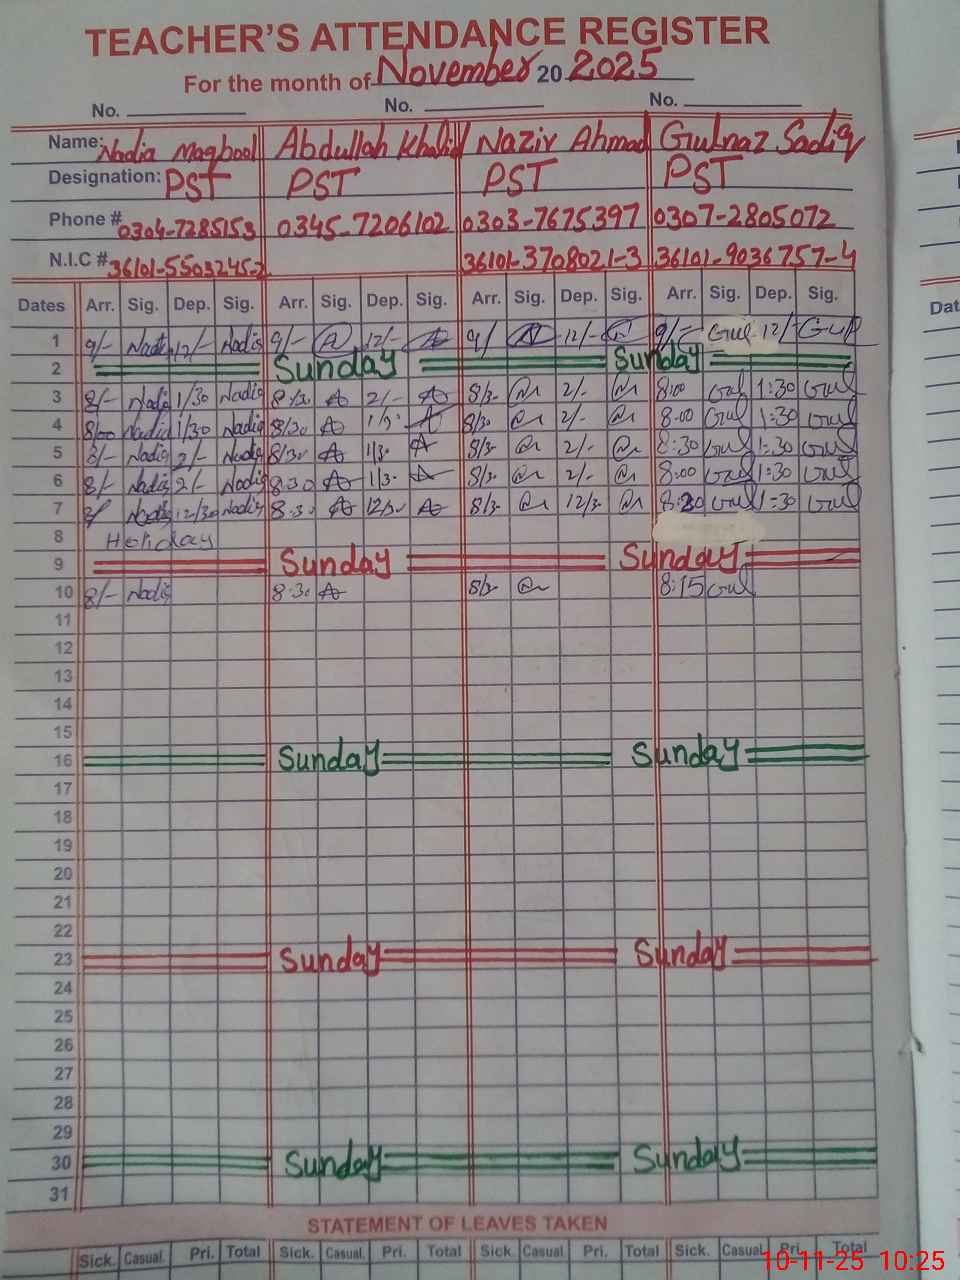 TEACHER'S ATTENDANCE REGISTER
For the month of November 20 2025
No. No. No.
Name: Nadia Maqbool Abdullah Khalid Nazir Ahmad Gulnaz Sadiq
Designation: PST PST PST PST
Phone # 0304-7285153 0345-7206102 0303-7675397 0307-2805072
N.I.C # 36101-5503245-2 36101-3708021-3 36101-9036757-4
Dates Arr. Sig. Dep. Sig. Arr. Sig. Dep. Sig. Arr. Sig. Dep. Sig. Arr. Sig. Dep. Sig.
1 9/- Nadia 12/- Nadia 9/- 12/- 9/ 12/- 9/- Gul 12/- Gul
2 Sunday Sunday
3 8/- Nadia 1/30 Nadia 8/30 2/- 8/3- 2/- 8:00 Gul 1:30 Gul
4 8/00 Nadia 1/30 Nadia 8/30 8/3- 2/- 8:00 Gul 1:30 Gul
5 8/- Nadia 2/- Nadia 8/30 1/3- 8/3- 2/- 8:30 Gul 1:30 Gul
6 8/- Nadia 2/- Nadia 8:30 1/3- 8/3- 2/- 8:00 Gul 1:30 Gul
7 Nadia 12/30 Nadia 8:30 12/30 8/3- 12/3- 8:20 Gul 1:30 Gul
8 Holiday
9 Sunday Sunday
10 8/- Nadia 8:30 8/3- 8:15 Gul
11
12
13
14
15
16 Sunday Sunday
17
18
19
20
21
22
23 Sunday Sunday
24
25
26
27
28
29
30 Sunday Sunday
31
STATEMENT OF LEAVES TAKEN
Sick. Casual. Pri. Total Sick. Casual. Pri. Total Sick. Casual. Pri. Total Sick. Casual. Pri. Total
10-11-25 10:25
Dat